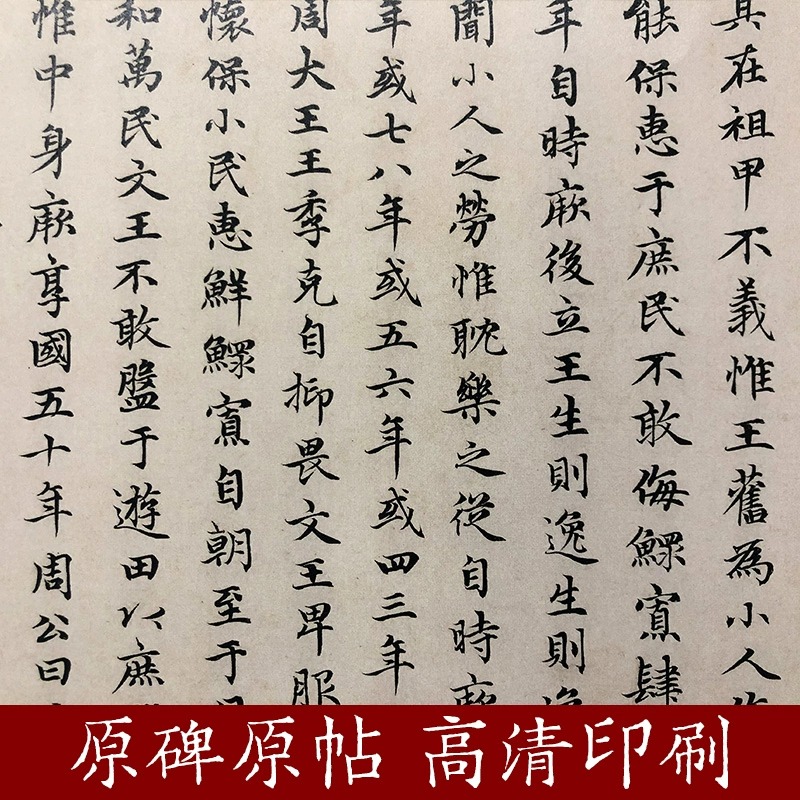 其在祖甲不義惟王舊為小人作
能保惠于庶民不敢侮鰥寡肆
年自時厥後立王生則逸生則逸
聞小人之勞惟耽樂之從自時厥
年或七八年或五六年或四三年
周大王王季克自抑畏文王卑服
懷保小民惠鮮鰥寡自朝至于日
和萬民文王不敢盤于遊田以庶
惟中身厥享國五十年周公曰
原碑原帖 高清印刷